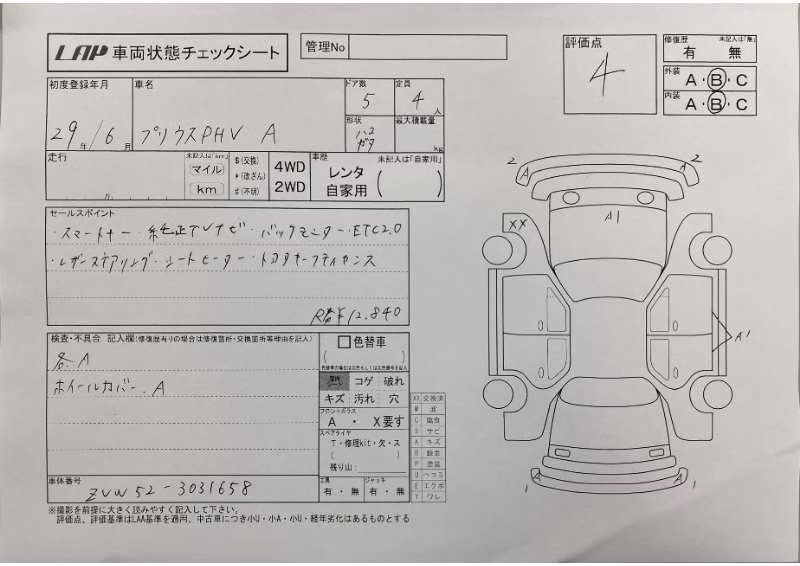 LAP 車両状態チェックシート
管理No
評価点
4
修復歴 未記入は「無」
有 無
外装 A・B・C
内装 A・B・C
初度登録年月
29年/6月
車名
プリウスPHV A
ドア数
5
定員
4人
形状
ハコ
最大積載量
kg
走行
未記入は「km」
マイル
km
$(交換)
*(改ざん)
#(不明)
4WD
2WD
車歴 未記入は「自家用」
レンタ
自家用( )
セールスポイント
・スマートキー・純正TVナビ・バックモニター・ETC2.0
・レザーステアリング・シートヒーター・トヨタセーフティセンス
R券¥12.840
検査・不具合 記入欄(修復歴有りの場合は修復箇所・交換箇所等理由を記入)
各A
ホイールカバー.A
色替車
( )
コゲ 破れ
キズ 汚れ 穴
フロントガラス
A ・ X要す
スペアタイヤ
T・修理kit・欠・ス
( )
残り山:
工具
有・無
ジャッキ
有・無
XX 交換済
W 波
C 腐食
S サビ
A キズ
P 塗装
U ヘコミ
E エクボ
Y ワレ
車体番号
ZVW52-3031658
※撮影を前提に大きく読みやすく記入して下さい。
評価点、評価基準はLAA基準を適用、中古車につき小U・小A・小U・経年劣化はあるものとする
2
A
A
2
A1
XX
A1
A
1
A
1